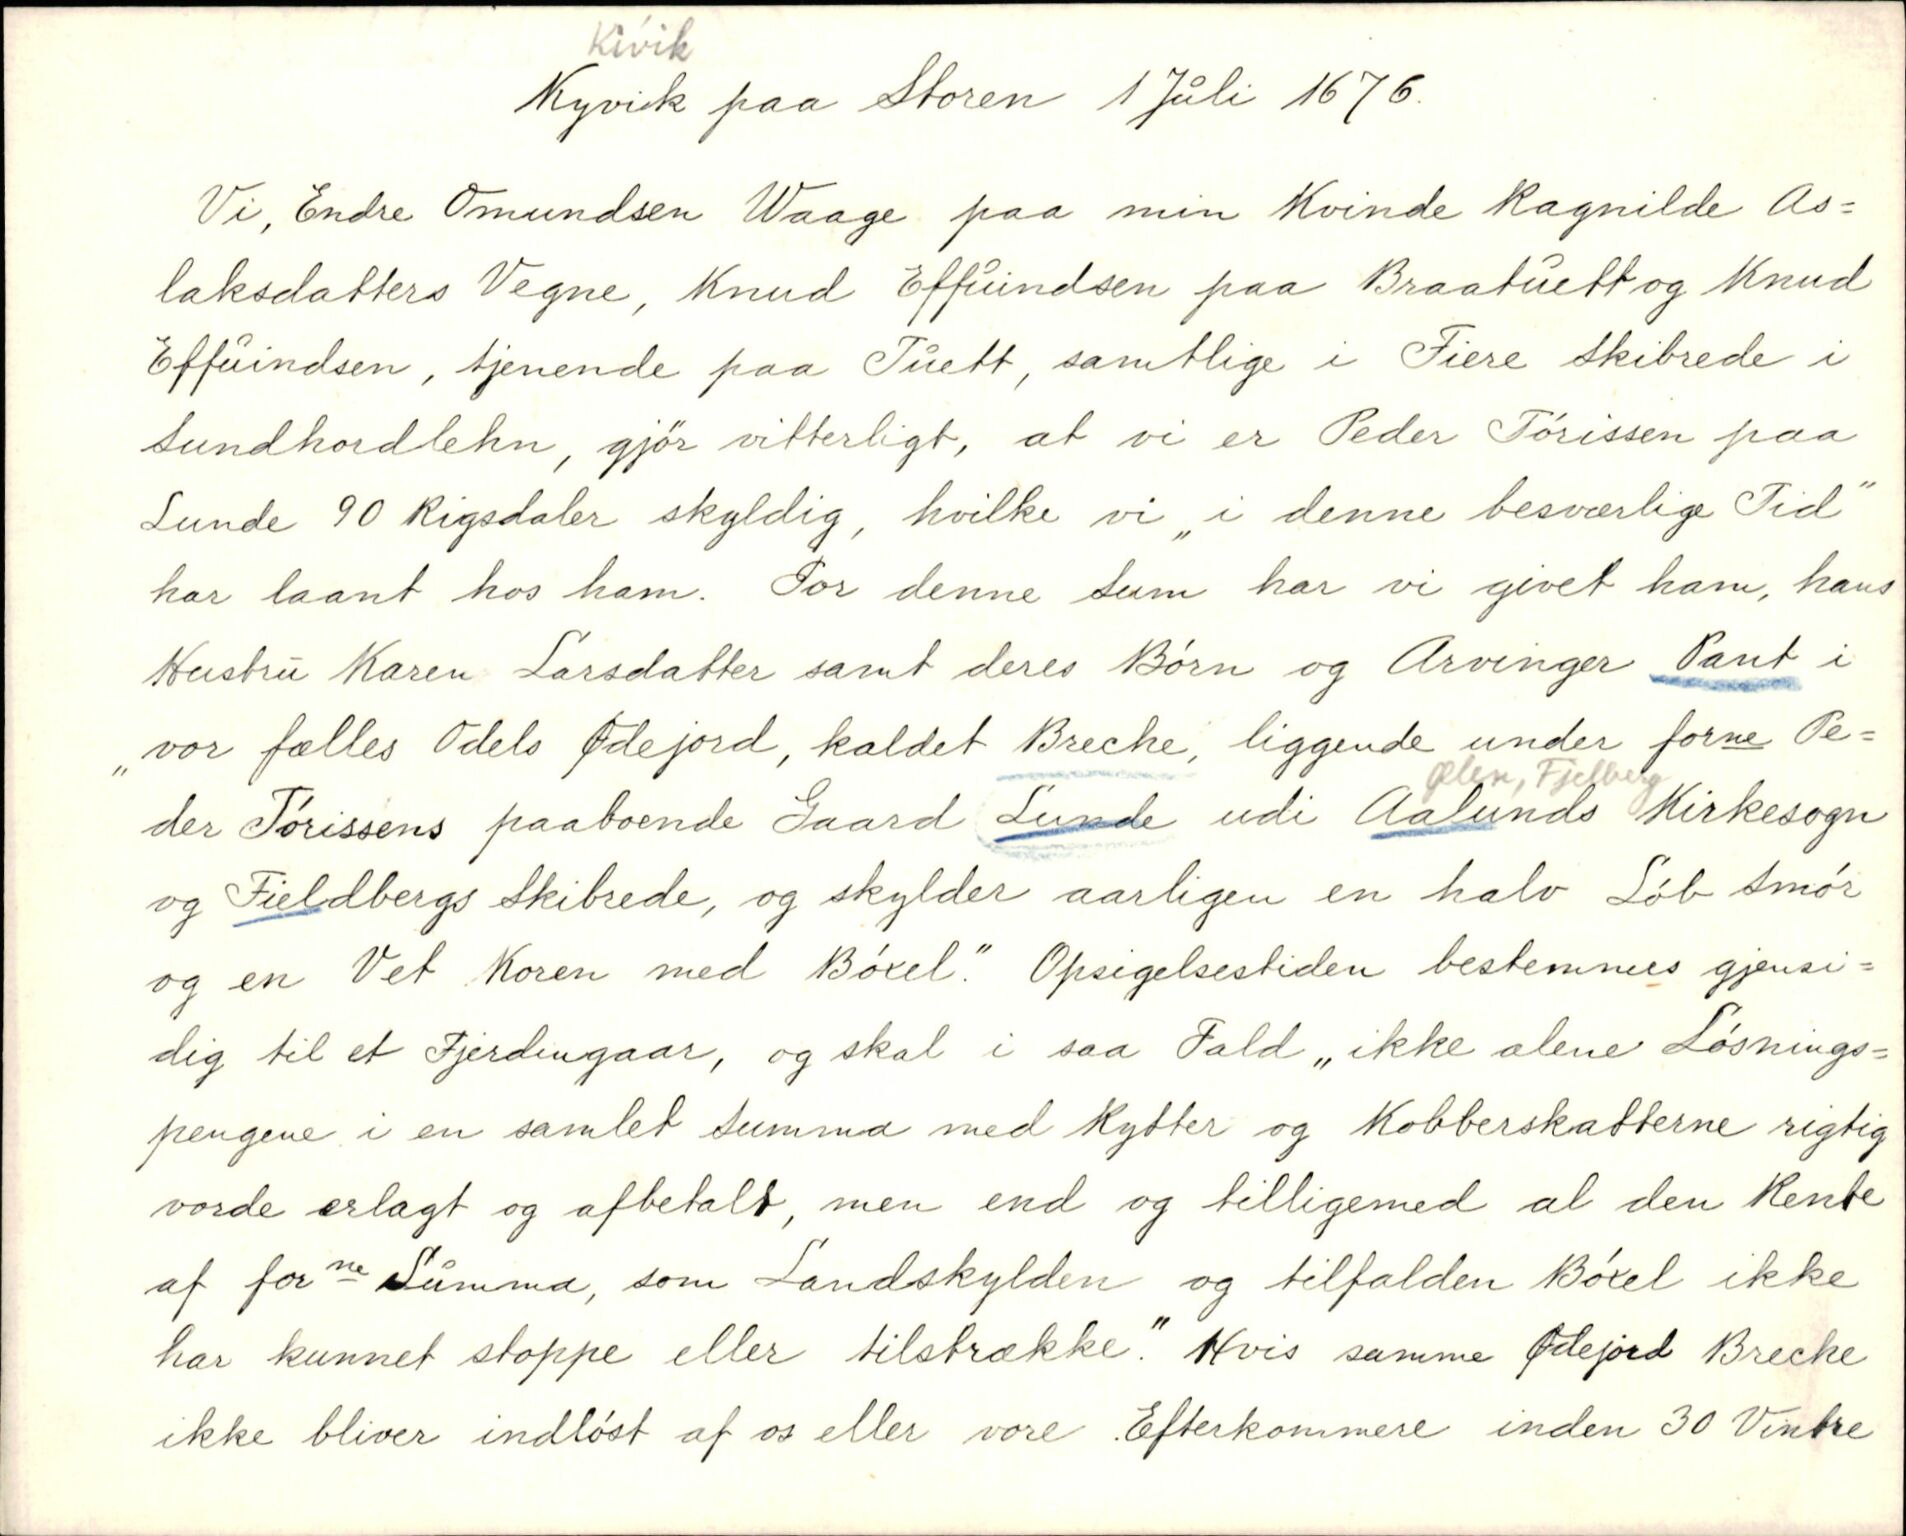 Kivik
Kyvick paa Storen 1 Jůli 1676.
Vi, Endre Omundsen Waage paa min Kvinde Ragnilde As=
laksdatters Vegne, Knud Effůindsen paa Braatůett og Knud
Effůindsen, tjenende paa Tůett, samtlige i Fiere Skibrede i
Sundhordlehn, gjör vitterligt, at vi er Peder Tórissen paa
Lunde 90 Rigsdaler skyldig, hvilke vi „i denne besværlige Tid"
har laant hos ham. For denne Sum har vi givet ham, hans
Hustrū Karen Larsdatter samt deres Børn og Arvinger Pant i
„vor fælles Odels Ødejord, kaldet Breche, liggende under forne Pe=
Ølen, Fjelberg
der Tórissens paaboende Gaard Lunde udi Aalunds Kirkesogn
og Fieldbergs Skibrede, og skylder aarligen en halv Lób Smór
og en Vet Koren med Bóxel." Opsigelsestiden bestemmes gjensi=
dig til et Fjerdingaar, og skal i saa Fald „ikke alene Lósnings=
pengene i en samlet Summa med Rytter og Kobberskatterne rigtig
vorde erlagt og afbetalt, men end og tilligemed al den Rente
af forne Sůmma, som Landskylden og tilfalden Bóxel ikke
har kunnet stoppe eller tilstrække." Hvis samme Ødejord Breche
ikke bliver indlóst af os eller vore Efterkommere inden 30 Vintre